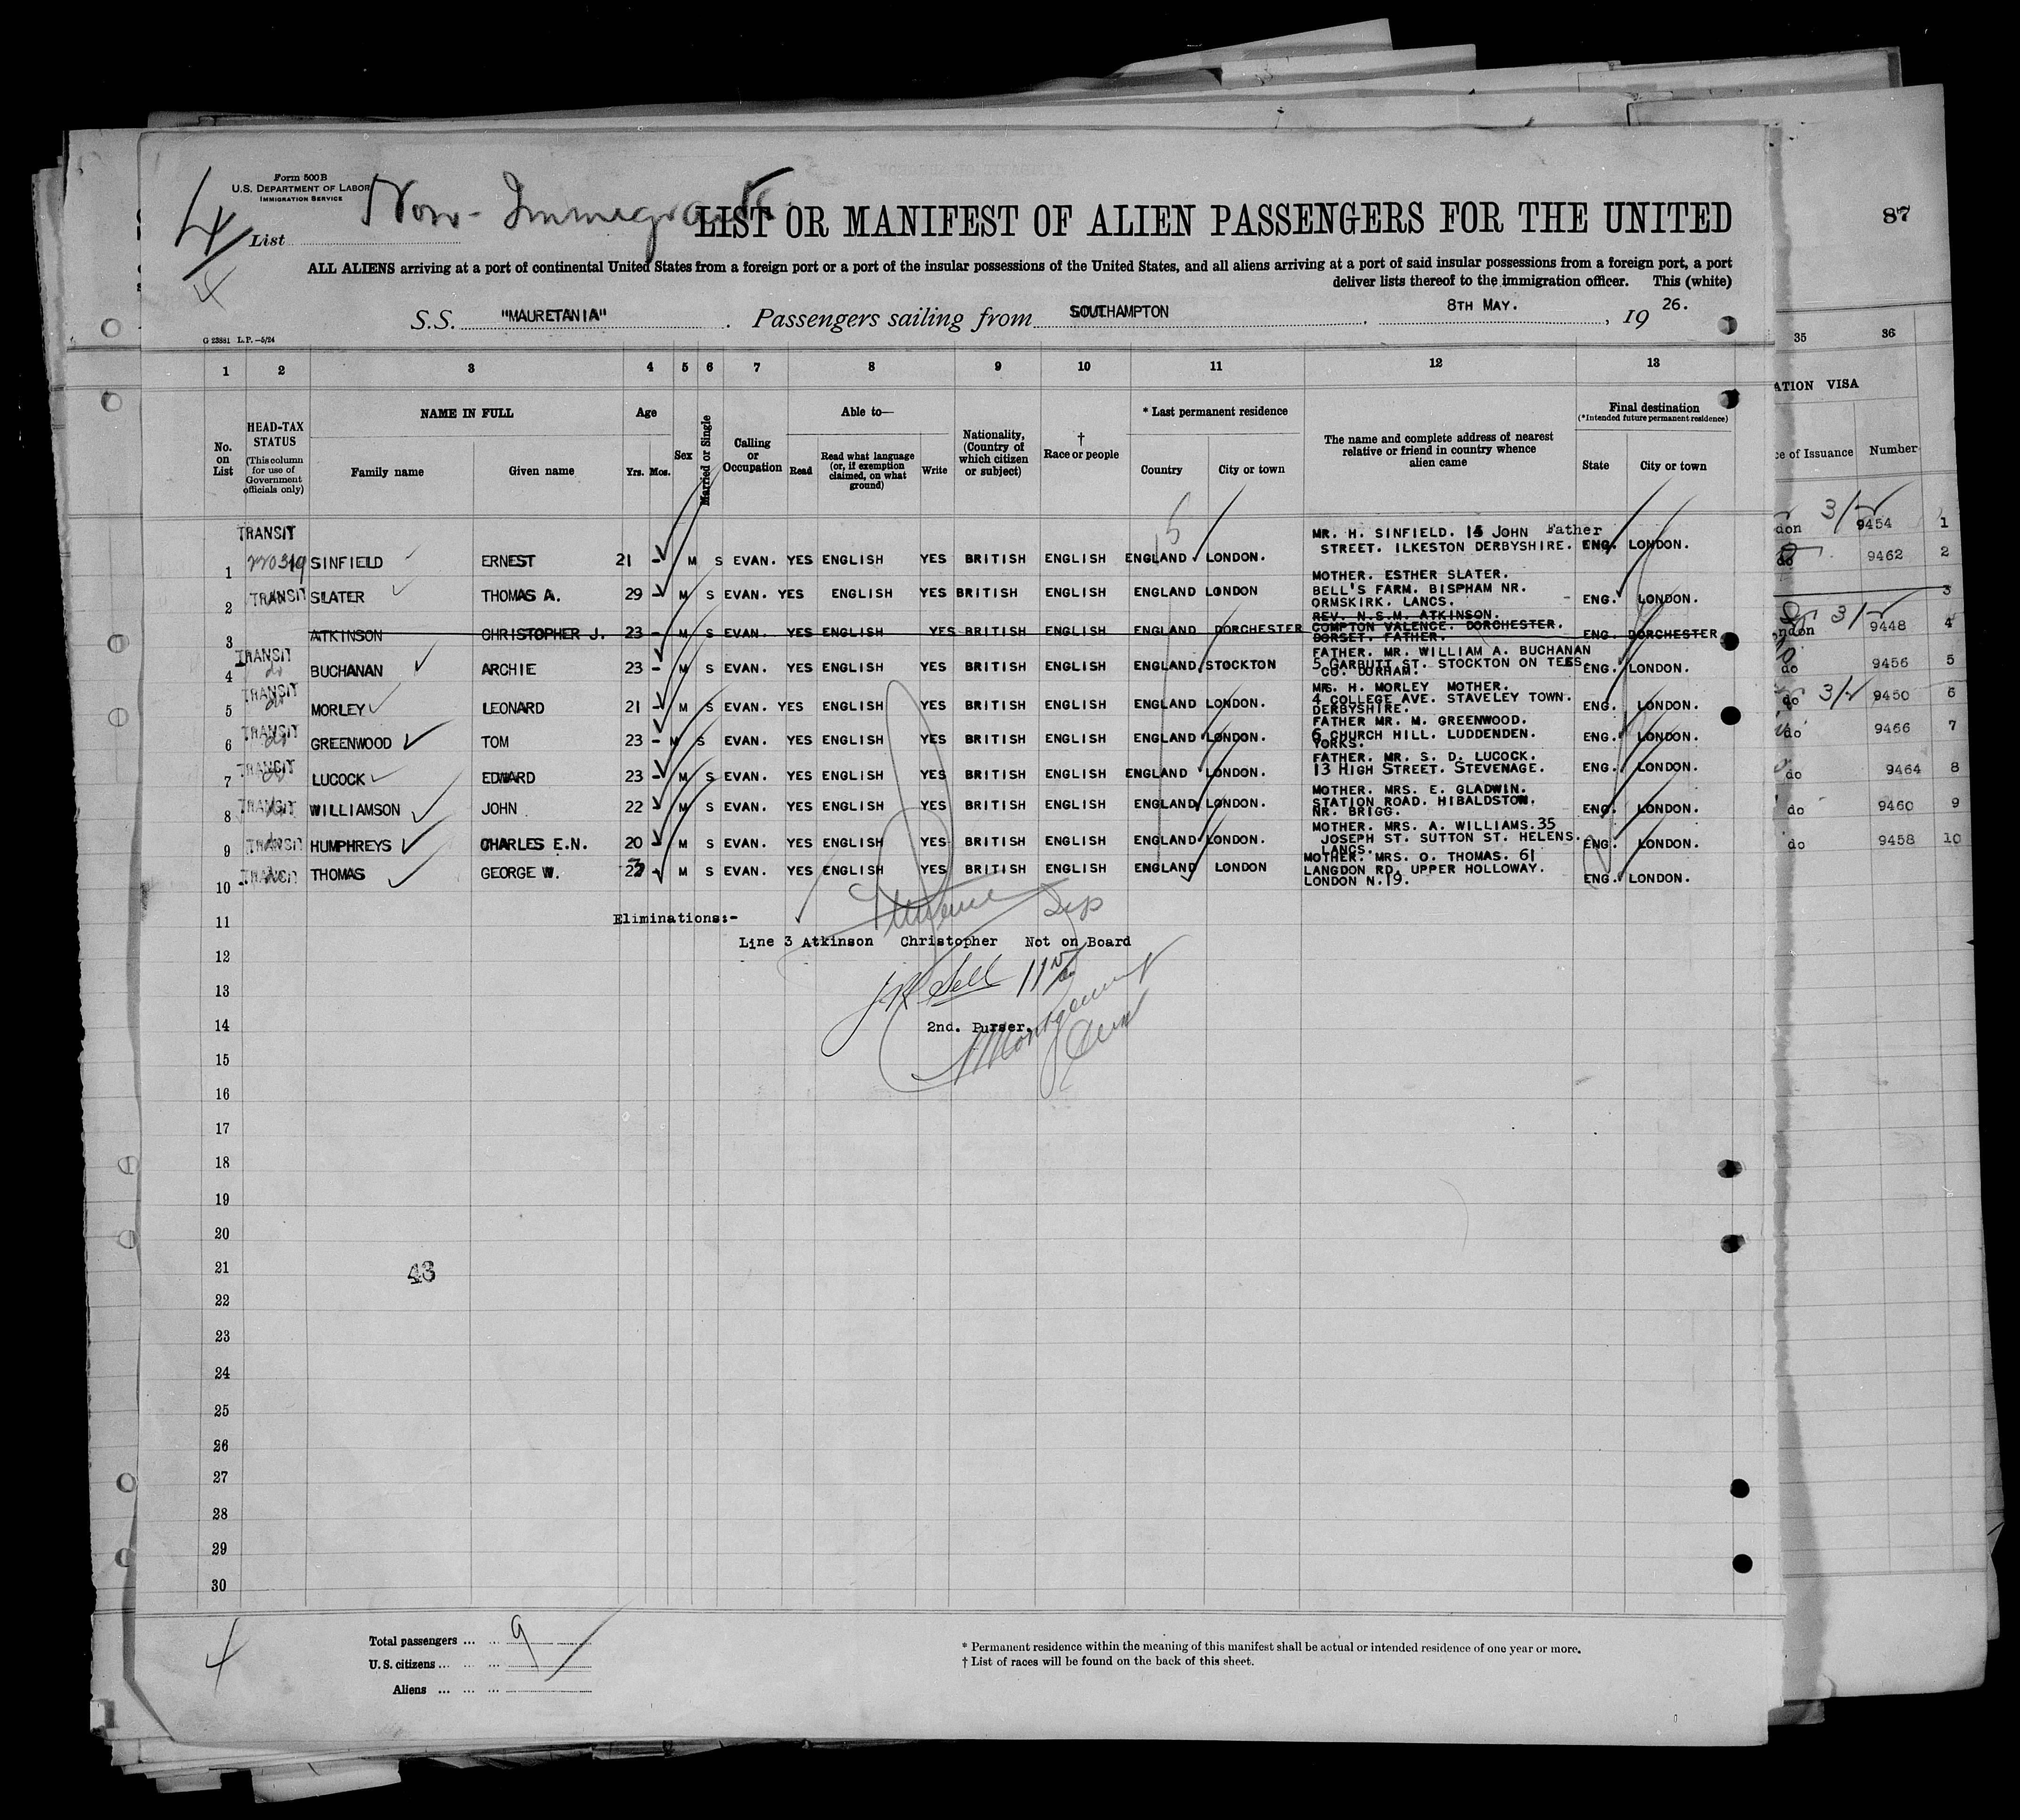 Form 500 B
U.S. DEPARTMENT OF LABOR
IMMIGRATION SERVICE
4
List
Non-Immigrant
LIST OR MANIFEST OF ALIEN PASSENGERS FOR THE UNITED
87
4
ALL ALIENS arriving at a port of continental United States from a foreign port or a port of the insular possessions of the United States, and all aliens arriving at a port of said insular possessions from a foreign port, a port
deliver lists thereof to the immigration officer. This (white)
S.S. "MAURETANIA". Passengers sailing from SOUTHAMPTON, 8TH MAY., 1926.
G 23881 L.P.—5/24
1 2 3 4 5 6 7 8 9 10 11 12 13 35 36
No. on List
HEAD-TAX STATUS (This column for use of Government officials only)
NAME IN FULL
Family name
Given name
Age
Yrs. Mos.
Sex
Married or Single
Calling or Occupation
Able to—
Read
Read what language (or, if exemption claimed, on what ground)
Write
Nationality, (Country of which citizen or subject)
† Race or people
* Last permanent residence
Country
City or town
The name and complete address of nearest relative or friend in country whence alien came
Final destination
(*Intended future permanent residence)
State
City or town
ATION VISA
ce of Issuance
Number
5
TRANSIT
1 SINFIELD ERNEST 21 - M S EVAN. YES ENGLISH YES BRITISH ENGLISH ENGLAND LONDON. MR. H. SINFIELD. 15 JOHN Father
STREET. ILKESTON DERBYSHIRE. ENG. LONDON. don 3/- 9454 1
2 TRANSIT SLATER THOMAS A. 29 - M S EVAN. YES ENGLISH YES BRITISH ENGLISH ENGLAND LONDON MOTHER. ESTHER SLATER.
BELL'S FARM. BISPHAM NR.
ORMSKIRK. LANCS. - ENG. LONDON. do 9462 2
3
3 ATKINSON CHRISTOPHER J. 23 - M S EVAN. YES ENGLISH YES BRITISH ENGLISH ENGLAND DORCHESTER REV. N.S.M. ATKINSON.
COMPTON VALENCE. DORCHESTER.
DORSET. FATHER. ENG. DORCHESTER
ondon 9448 4
TRANSIT
4 do BUCHANAN ARCHIE 23 - M S EVAN. YES ENGLISH YES BRITISH ENGLISH ENGLAND STOCKTON FATHER. MR. WILLIAM A. BUCHANAN
5 GARBUTT ST. STOCKTON ON TEES
CO. DURHAM. ENG. LONDON. do 9456 5
TRANSIT
5 do MORLEY LEONARD 21 - M S EVAN. YES ENGLISH YES BRITISH ENGLISH ENGLAND LONDON. MRS. H. MORLEY MOTHER.
4 COLLEGE AVE. STAVELEY TOWN.
DERBYSHIRE. ENG. LONDON. do 9450 6
TRANSIT
6 do GREENWOOD TOM 23 - M S EVAN. YES ENGLISH YES BRITISH ENGLISH ENGLAND LONDON. FATHER MR. M. GREENWOOD.
6 CHURCH HILL. LUDDENDEN.
YORKS. ENG. LONDON. do 9466 7
TRANSIT
7 do LUCOCK EDWARD 23 - M S EVAN. YES ENGLISH YES BRITISH ENGLISH ENGLAND LONDON. FATHER. MR. S. D. LUCOCK.
13 HIGH STREET. STEVENAGE. ENG. LONDON. do 9464 8
8 TRANSIT WILLIAMSON JOHN 22 M S EVAN. YES ENGLISH YES BRITISH ENGLISH ENGLAND LONDON. MOTHER. MRS. E. GLADWIN.
STATION ROAD. HIBALDSTOW.
NR. BRIGG. ENG. LONDON. do 9460 9
9 TRANSIT HUMPHREYS CHARLES E.N. 20 M S EVAN. YES ENGLISH YES BRITISH ENGLISH ENGLAND LONDON. MOTHER. MRS. A. WILLIAMS. 35
JOSEPH ST. SUTTON ST. HELENS.
LANCS. ENG. LONDON. do 9458 10
10 TRANSIT THOMAS GEORGE W. - M S EVAN. YES ENGLISH YES BRITISH ENGLISH ENGLAND LONDON MOTHER. MRS. O. THOMAS. 61
LANGDON RD. UPPER HOLLOWAY.
LONDON N.19. ENG. LONDON.
11 Eliminations:-
12 Line 3 Atkinson Christopher Not on Board
13
14 2nd. Purser.
15
16
17
18
19
20
21 43
22
23
24
25
26
27
28
29
30
4
Total passengers ... ... 9
U. S. citizens ... ... ...
Aliens ... ... ...
* Permanent residence within the meaning of this manifest shall be actual or intended residence of one year or more.
† List of races will be found on the back of this sheet.